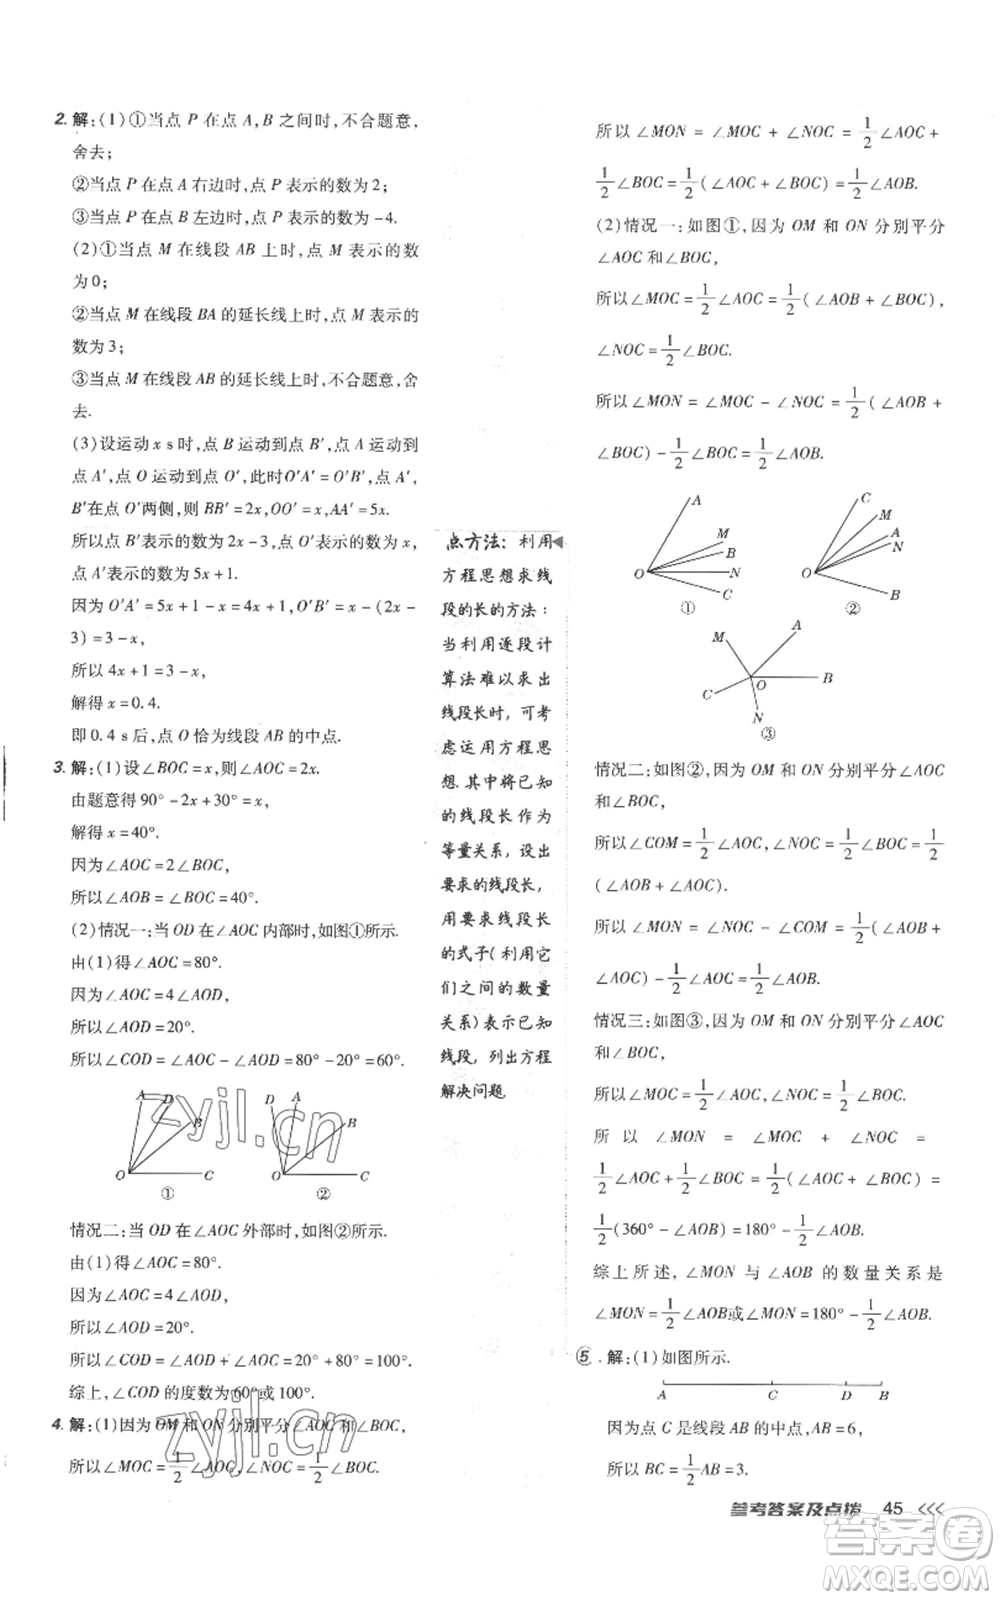 2. 解:(1)①当点 P 在点 A,B 之间时,不合题意,
舍去;
②当点 P 在点 A 右边时,点 P 表示的数为 2;
③当点 P 在点 B 左边时,点 P 表示的数为 -4.
(2)①当点 M 在线段 AB 上时,点 M 表示的数
为 0;
②当点 M 在线段 BA 的延长线上时,点 M 表示的
数为 3;
③当点 M 在线段 AB 的延长线上时,不合题意,舍
去.
(3)设运动 x s 时,点 B 运动到点 B′,点 A 运动到
点 A′,点 O 运动到点 O′,此时 O′A′=O′B′,点 A′,
B′在点 O′两侧,则 BB′=2x,OO′=x,AA′=5x.
所以点 B′表示的数为 2x-3,点 O′表示的数为 x,
点 A′表示的数为 5x+1.
因为 O′A′=5x+1-x=4x+1,O′B′=x-(2x-
3)=3-x,
所以 4x+1=3-x,
解得 x=0.4.
即 0.4 s 后,点 O 恰为线段 AB 的中点.
3. 解:(1)设∠BOC=x,则∠AOC=2x.
由题意得 90°-2x+30°=x,
解得 x=40°.
因为∠AOC=2∠BOC,
所以∠AOB=∠BOC=40°.
(2)情况一:当 OD 在∠AOC 内部时,如图①所示.
由(1)得∠AOC=80°.
因为∠AOC=4∠AOD,
所以∠AOD=20°.
所以∠COD=∠AOC-∠AOD=80°-20°=60°.
A D B O C
①
D A B O C
②
情况二:当 OD 在∠AOC 外部时,如图②所示.
由(1)得∠AOC=80°.
因为∠AOC=4∠AOD,
所以∠AOD=20°.
所以∠COD=∠AOC+∠AOD=80°+20°=100°.
综上,∠COD 的度数为 60°或 100°.
4. 解:(1)因为 OM 和 ON 分别平分∠AOC 和∠BOC,
所以∠MOC=1/2∠AOC,∠NOC=1/2∠BOC.
点方法:利用
方程思想求线
段的长的方法:
当利用逐段计
算法难以求出
线段长时,可考
虑运用方程思
想.其中将已知
的线段长作为
等量关系,设出
要求的线段长,
用要求线段长
的式子(利用它
们之间的数量
关系)表示已知
线段,列出方程
解决问题
所以∠MON=∠MOC+∠NOC=1/2∠AOC+
1/2∠BOC=1/2(∠AOC+∠BOC)=1/2∠AOB.
(2)情况一:如图①,因为 OM 和 ON 分别平分
∠AOC 和∠BOC,
所以∠MOC=1/2∠AOC=1/2(∠AOB+∠BOC),
∠NOC=1/2∠BOC.
所以∠MON=∠MOC-∠NOC=1/2(∠AOB+
∠BOC)-1/2∠BOC=1/2∠AOB.
A M B N C O
①
C M A N B O
②
M A B C O N
③
情况二:如图②,因为 OM 和 ON 分别平分∠AOC
和∠BOC,
所以∠COM=1/2∠AOC,∠NOC=1/2∠BOC=1/2
(∠AOB+∠AOC).
所以∠MON=∠NOC-∠COM=1/2(∠AOB+
∠AOC)-1/2∠AOC=1/2∠AOB.
情况三:如图③,因为 OM 和 ON 分别平分∠AOC
和∠BOC,
所以∠MOC=1/2∠AOC,∠NOC=1/2∠BOC.
所以∠MON=∠MOC+∠NOC=
1/2∠AOC+1/2∠BOC=1/2(∠AOC+∠BOC)=
1/2(360°-∠AOB)=180°-1/2∠AOB.
综上所述,∠MON 与∠AOB 的数量关系是
∠MON=1/2∠AOB或∠MON=180°-1/2∠AOB.
⑤. 解:(1)如图所示.
A C D B
因为点 C 是线段 AB 的中点,AB=6,
所以 BC=1/2AB=3.
参考答案及点拨 45 《《
zyjl.cn
zyjl.cn
答案卷
MXQE.COM